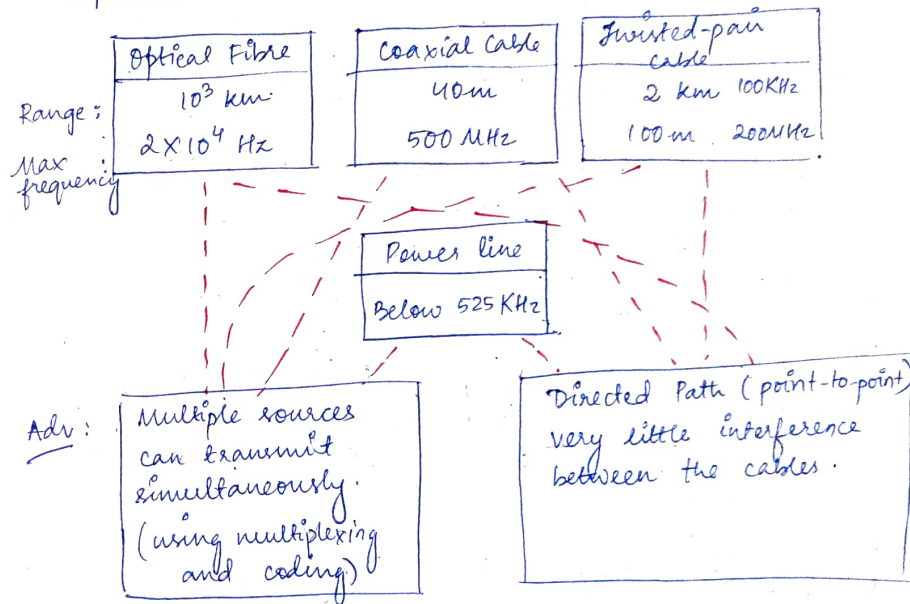 Optical Fibre
10³ km
2 X 10⁴ Hz
Coaxial Cable
40m
500 MHz
Twisted-pair
cable
2 km 100KHz
100m 200MHz
Range :
Max :
frequency
Power line
Below 525 KHz
Adv :
Multiple sources
can transmit
simultaneously.
(using multiplexing
and coding)
Directed Path (point-to-point)
very little interference
between the cables.